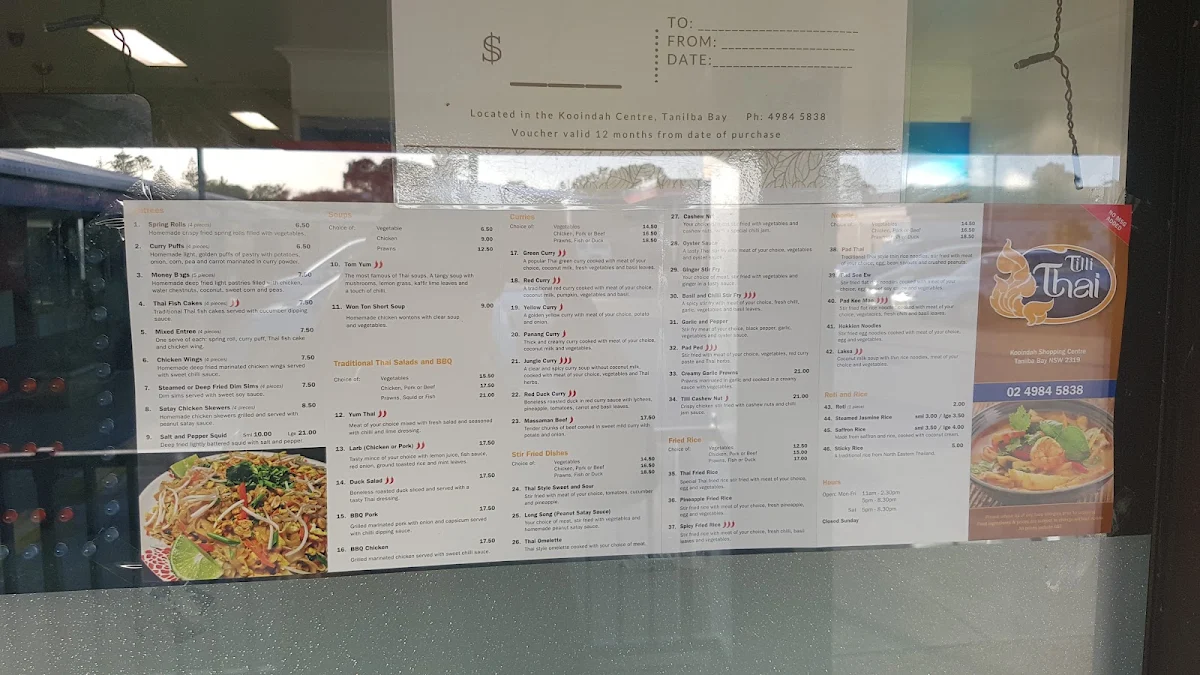 $
TO:
FROM:
DATE:
Located in the Kooindah Centre, Tanilba Bay Ph: 4984 5838
Voucher valid 12 months from date of purchase
1. Spring Rolls (4 pieces) 6.50
Homemade crispy fried spring rolls filled with vegetables.
2. Curry Puffs (4 pieces) 6.50
Homemade light, golden puffs of pastry with potatoes,
onion, corn, pea and carrot marinated in curry powder.
3. Money Bags (5 pieces) 7.50
Homemade deep fried light pastries filled with chicken,
water chestnuts, coconut, sweet corn and peas.
4. Thai Fish Cakes (4 pieces) 7.50
Traditional Thai fish cakes served with cucumber dipping
sauce.
5. Mixed Entree (4 pieces) 7.50
One serve of each: spring roll, curry puff, Thai fish cake
and chicken wing.
6. Chicken Wings (4 pieces) 7.50
Homemade deep fried marinated chicken wings served
with sweet chilli sauce.
7. Steamed or Deep Fried Dim Sims (4 pieces) 7.50
Dim sims served with sweet soy sauce.
8. Satay Chicken Skewers (4 pieces) 8.50
Homemade chicken skewers grilled and served with
peanut satay sauce.
9. Salt and Pepper Squid Sml 16.00 Lge 21.00
Deep fried lightly battered squid with salt and pepper
Soups
Choice of: Vegetable 6.50
Chicken 9.00
Prawns 12.50
10. Tom Yum
The most famous of Thai soups. A tangy soup with
mushrooms, lemon grass, kaffir lime leaves and
a touch of chilli.
11. Won Ton Short Soup 9.00
Homemade chicken wontons with clear soup
and vegetables.
Traditional Thai Salads and BBQ
Choice of: Vegetables 15.50
Chicken, Pork or Beef 17.50
Prawns, Squid or Fish 21.00
12. Yum Thai
Meat of your choice mixed with fresh salad and seasoned
with chilli and lime dressing.
13. Larb (Chicken or Pork) 17.50
Tasty mince of your choice with lemon juice, fish sauce,
red onion, ground toasted rice and mint leaves.
14. Duck Salad 17.50
Boneless roasted duck sliced and served with a
tasty Thai dressing.
15. BBQ Pork 17.50
Grilled marinated pork with onion and capsicum served
with chilli dipping sauce.
16. BBQ Chicken 17.50
Grilled marinated chicken served with sweet chilli sauce.
Curries
Choice of: Vegetables 14.50
Chicken, Pork or Beef 16.50
Prawns, Fish or Duck 18.50
17. Green Curry
A popular Thai green curry cooked with meat of your
choice, coconut milk, fresh vegetables and basil leaves.
18. Red Curry
A traditional red curry cooked with meat of your choice,
coconut milk, pumpkin, vegetables and basil.
19. Yellow Curry
A golden yellow curry with meat of your choice, potato
and onion.
20. Panang Curry
Thick and creamy curry cooked with meat of your choice,
coconut milk and vegetables.
21. Jungle Curry
A clear and spicy curry soup without coconut milk,
cooked with meat of your choice, vegetables and Thai
herbs.
22. Red Duck Curry
Boneless roasted duck in red curry sauce with lychees,
pineapple, tomatoes, carrot and basil leaves.
23. Massaman Beef 17.50
Tender chunks of beef cooked in sweet mild curry with
potato and onion.
Stir Fried Dishes
Choice of: Vegetables 14.50
Chicken, Pork or Beef 16.50
Prawns, Fish or Duck 18.50
24. Thai Style Sweet and Sour
Stir fried with meat of your choice, tomatoes, cucumber
and pineapple.
25. Long Song (Peanut Satay Sauce)
Your choice of meat, stir fried with vegetables and
homemade peanut satay sauce.
26. Thai Omelette
Thai style omelette cooked with your choice of meat.
27. Cashew Nut
28. Oyster Sauce
29. Ginger Stir Fry
30. Basil and Chilli Stir Fry
A spicy stir fry with meat of your choice, fresh chilli,
garlic, vegetables and basil leaves.
31. Garlic and Pepper
Stir fry meat of your choice, black pepper, garlic,
32. Pad Ped
Stir fried with meat of your choice, vegetables, red curry
paste and Thai herbs.
33. Creamy Garlic Prawns 21.00
Prawns marinated in garlic and cooked in a creamy
sauce with vegetables.
34. Tilli Cashew Nut 21.00
Crispy chicken stir fried with cashew nuts and chilli
jam sauce.
Fried Rice
Choice of: Vegetables 12.50
Chicken, Pork or Beef 15.00
Prawns, Fish or Duck 17.00
35. Thai Fried Rice
Special Thai fried rice stir fried with meat of your choice,
egg and vegetables.
36. Pineapple Fried Rice
Stir fried rice with meat of your choice, fresh pineapple,
egg and vegetables.
37. Spicy Fried Rice
Stir fried rice with meat of your choice, fresh chilli, basil
leaves and vegetables.
Vegetables 14.50
Chicken, Pork or Beef 16.50
Prawns, Fish or Duck 18.50
38. Pad Thai
39. Pad See Ew
40. Pad Kee Mao
41. Hokkien Noodles
Stir fried egg noodles cooked with meat of your choice,
egg and vegetables.
42. Laksa
Coconut milk soup with thin rice noodles, meat of your
choice and vegetables.
Roti and Rice
43. Roti 2.00
44. Steamed Jasmine Rice sml 3.00 / lge 3.50
45. Saffron Rice sml 3.50 / lge 4.00
46. Sticky Rice 5.00
A traditional rice from North Eastern Thailand.
Hours
Open: Mon-Fri 11am - 2:30pm
5pm - 8:30pm
Sat 5pm - 8:30pm
Closed Sunday
NO MSG ADDED
Tilli
Thai
Kooindah Shopping Centre
Tanilba Bay NSW 2319
02 4984 5838